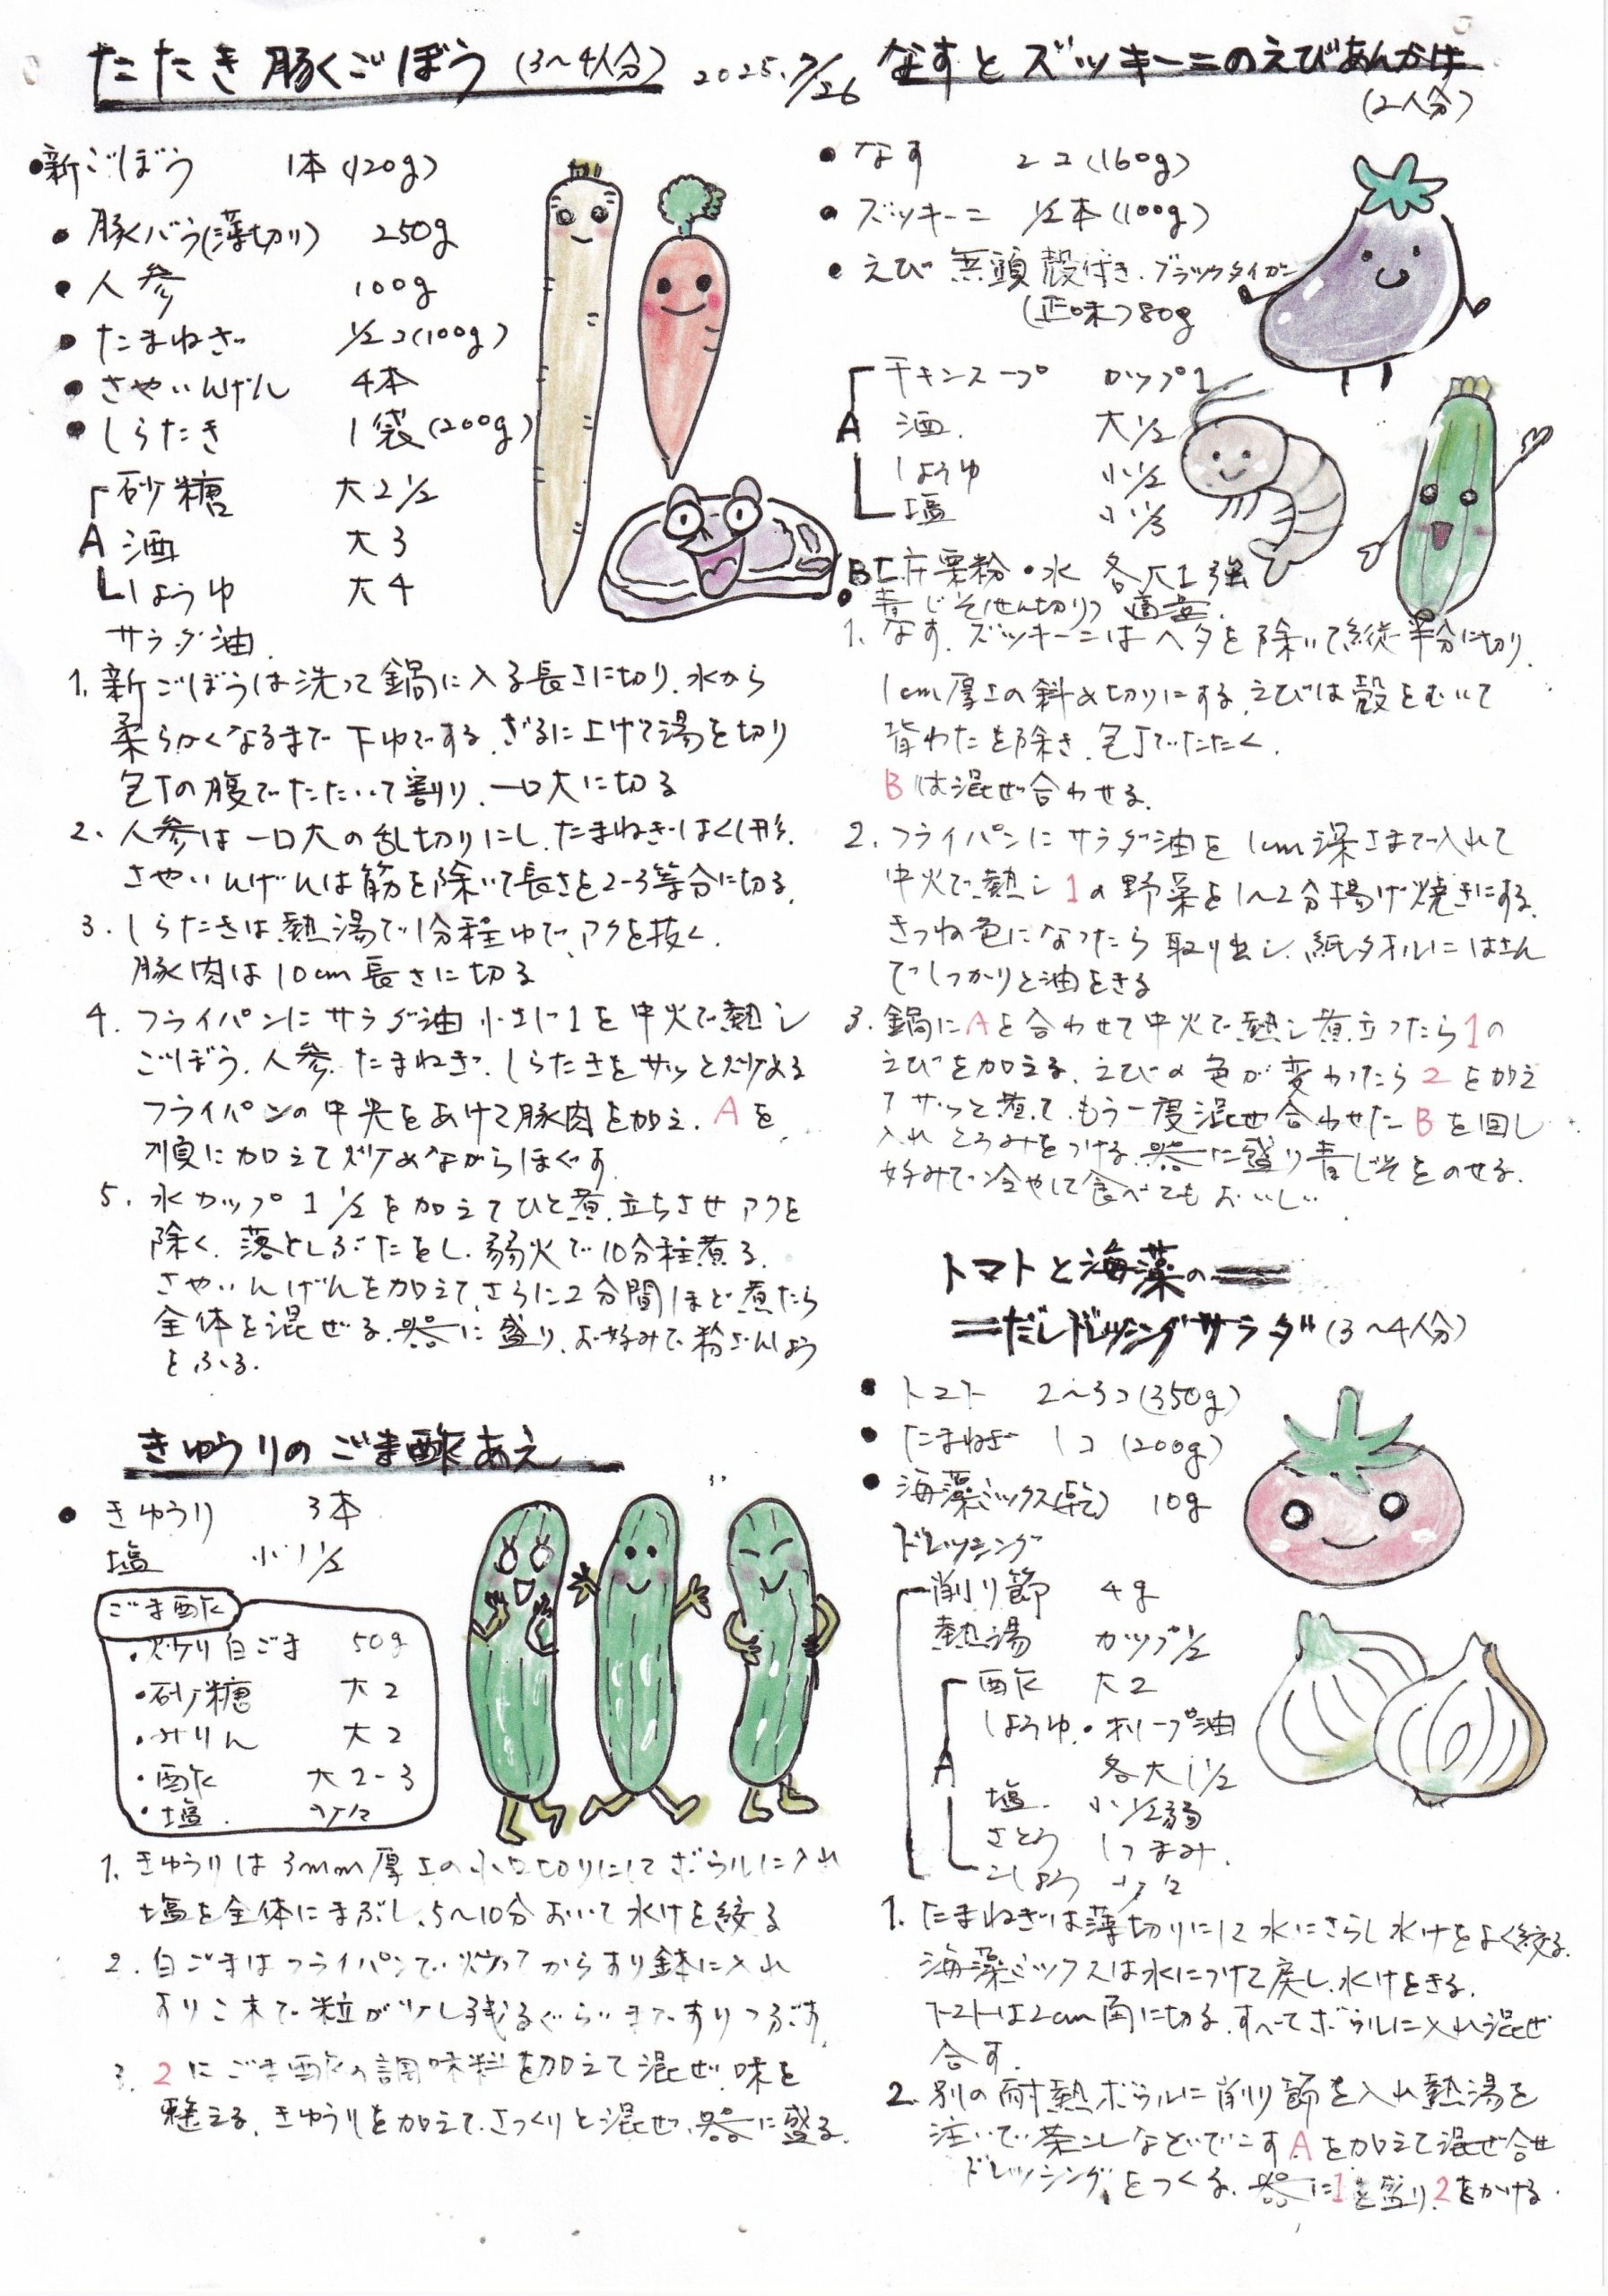 たたき豚くごぼう (3〜4人分) 2025.7/26
●新ごぼう 1本(120g)
●豚バラ(薄切り) 250g
●人参 100g
●たまねぎ 1/2コ(100g)
●さやいんげん 4本
●しらたき 1袋(200g)
A
砂糖 大2 1/2
酒 大3
しょうゆ 大4
サラダ油
1. 新ごぼうは洗って鍋に入る長さに切り、水から
柔らかくなるまで下ゆでする。ざるに上げて湯を切り
包丁の腹でたたいて割り、一口大に切る
2. 人参は一口大の乱切りにし、たまねぎはくし形、
さやいんげんは筋を除いて長さを2-3等分に切る。
3. しらたきは熱湯で1分程ゆで、アクを抜く。
豚肉は10cm長さに切る
4. フライパンにサラダ油小さじ1を中火で熱し
ごぼう、人参、たまねぎ、しらたきをサッと炒める
フライパンの中央をあけて豚肉を加え、Aを
順に加えて炒めながらほぐす
5. 水カップ1 1/2を加えてひと煮立ちさせアクを
除く。落としぶたをし、弱火で10分程煮る。
さやいんげんを加えて、さらに2分間ほど煮たら
全体を混ぜる。器に盛り、お好みで粉ざんしょう
をふる。
きゅうりのごま酢あえ
●きゅうり 3本
塩 小1 1/2
ごま酢
・炒り白ごま 50g
・砂糖 大2
・みりん 大2
・酢 大2-3
・塩 少々
1. きゅうりは3mm厚さの小口切りにしてボウルに入れ
塩を全体にまぶし、5〜10分おいて水けを絞る
2. 白ごまはフライパンで炒ってからすり鉢に入れ
すりこ木で粒が少し残るぐらいまですりつぶす。
3. 2にごま酢の調味料を加えて混ぜ、味を
整える。きゅうりを加えて、さっくりと混ぜ、器に盛る。
なすとズッキーニのえびあんかけ
(2人分)
●なす 2コ(160g)
●ズッキーニ 1/2本(100g)
●えび 無頭殻付き・ブラックタイガー
(正味)80g
A
チキンスープ カップ1
酒 大1/2
しょうゆ 小1/2
塩 小1/3
B 片栗粉・水 各大1強
●青じそ(せん切り) 適量
1. なす、ズッキーニはヘタを除いて縦半分に切り、
1cm厚さの斜め切りにする。えびは殻をむいて
背わたを除き、包丁でたたく。
Bは混ぜ合わせる。
2. フライパンにサラダ油を1cm深さまで入れて
中火で熱し1の野菜を1〜2分揚げ焼きにする。
きつね色になったら取り出し、紙タオルにはさん
でしっかりと油をきる
3. 鍋にAを合わせて中火で熱し煮立ったら1の
えびを加える。えびの色が変わったら2を加え
てサッと煮て、もう一度混ぜ合わせたBを回し
入れとろみをつける。器に盛り青じそをのせる。
好みで冷やして食べてもおいしい。
トマトと海藻の
だしドレッシングサラダ(3〜4人分)
●トマト 2〜3コ(350g)
●たまねぎ 1コ(200g)
●海藻ミックス(乾) 10g
ドレッシング
削り節 4g
熱湯 カップ1/2
A
酢 大2
しょうゆ・オリーブ油
各大1 1/2
塩 小1/2弱
さとう 1つまみ
こしょう 少々
1. たまねぎは薄切りにして水にさらし水けをよく絞る。
海藻ミックスは水につけて戻し、水けをきる。
トマトは2cm角に切る。すべてボウルに入れ混ぜ
合す。
2. 別の耐熱ボウルに削り節を入れ熱湯を
注いで茶こしなどでこすAを加えて混ぜ合せ
ドレッシングをつくる。器に1を盛り、2をかける。